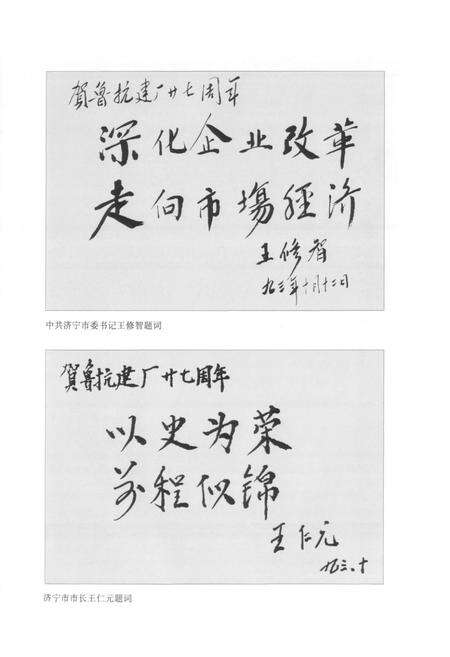 賀鲁抗建厂廿七周年
深化企业改革
走向市場經济
王修智
九三年十月十二日
中共济宁市委书记王修智题词
賀鲁抗建厂廿七周年
以史为荣
前程似锦
王仁元
九三.十
济宁市市长王仁元题词